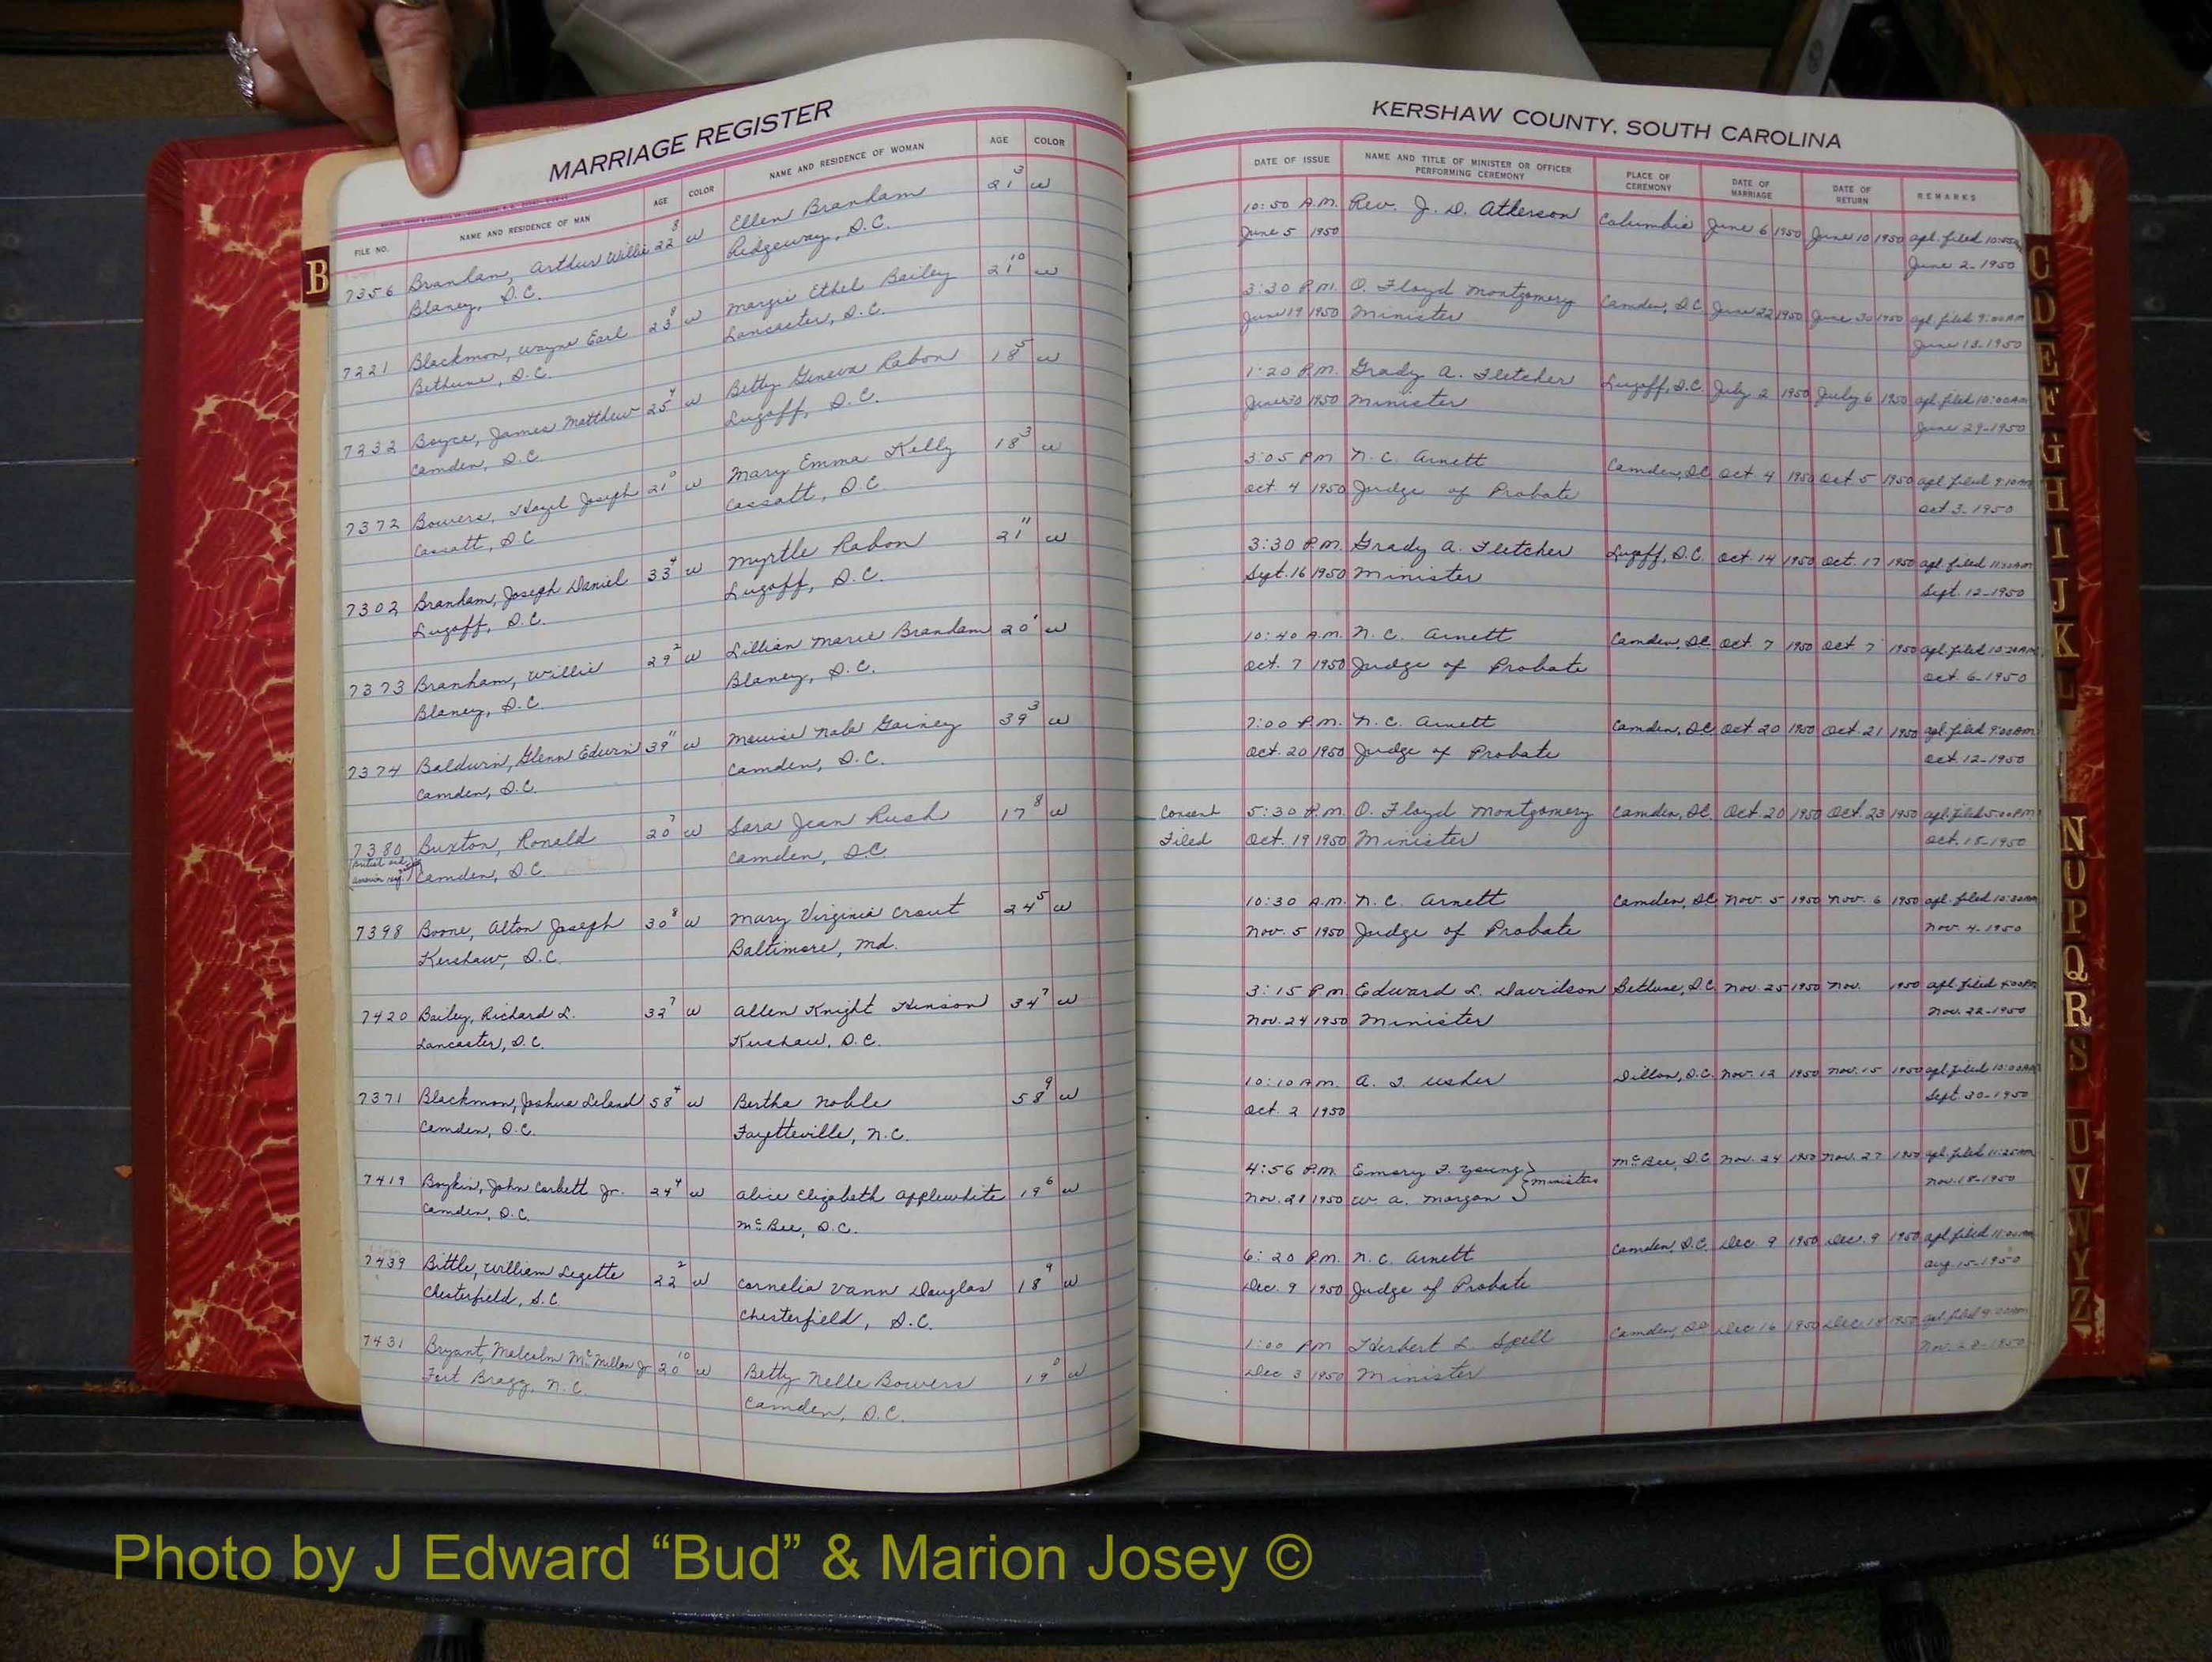 MARRIAGE REGISTER
FILE NO. NAME AND RESIDENCE OF MAN AGE COLOR NAME AND RESIDENCE OF WOMAN AGE COLOR
B
7356 Branham, Arthur Willie 22 8 W Ellen Branham 21 3 W
Blaney, S.C. Ridgeway, S.C.
7221 Blackmon, Wayne Earl 23 8 W Margie Ethel Bailey 21 10 W
Bethune, S.C. Lancaster, S.C.
7232 Boyce, James Matthew 25 4 W Betty Geneva Rabon 18 5 W
Camden, S.C. Lugoff, S.C.
7372 Bowers, Hazel Joseph 21 0 W Mary Emma Kelly 18 3 W
Cassatt, S.C. Cassatt, S.C.
7302 Branham, Joseph Daniel 33 4 W Myrtle Rabon 21 11 W
Lugoff, S.C. Lugoff, S.C.
7373 Branham, Willie 29 2 W Lillian Marie Branham 20 1 W
Blaney, S.C. Blaney, S.C.
7374 Baldwin, Glenn Edwin 39 11 W Gainey 39 3 W
Camden, S.C. Camden, S.C.
7380 Buxton, Ronald 20 7 W Sara Jean Rush 17 8 W
Camden, S.C. Camden, S.C.
7398 Boone, Alton Joseph 30 8 W Mary Virginia Crout 24 5 W
Kershaw, S.C. Baltimore, Md.
7420 Bailey, Richard L. 32 7 W Allen Knight Hinson 34 7 W
Lancaster, S.C. Kershaw, S.C.
7371 Blackmon, Joshua Leland 58 4 W Bertha Noble 58 9 W
Camden, S.C. Fayetteville, N.C.
7419 Boykin, John Corbett Jr. 24 4 W Alice Elizabeth Applewhite 19 6 W
Camden, S.C. McBee, S.C.
7439 Bittle, William Legette 22 2 W Cornelia Vann Douglas 18 9 W
Chesterfield, S.C. Chesterfield, S.C.
7431 Bryant, Malcolm McMillan Jr 20 10 W Betty Nelle Bowers 19 0 W
Fort Bragg, N.C. Camden, S.C.
KERSHAW COUNTY, SOUTH CAROLINA
DATE OF ISSUE NAME AND TITLE OF MINISTER OR OFFICER PERFORMING CEREMONY PLACE OF CEREMONY DATE OF MARRIAGE DATE OF RETURN REMARKS
10:50 A.M. Rev. J. D. Atkerson Columbia June 6 1950 June 10 1950 apl. filed
June 5 1950 June 2-1950
3:30 P.M. O. Floyd Montgomery Camden, S.C. June 22 1950 June 30 1950 apl. filed 9:00 AM
June 19 1950 Minister
1:20 P.M. Grady A. Fletcher Lugoff, S.C. July 2 1950 July 6 1950 apl. filed 10:00 AM
June 30 1950 Minister June 29-1950
3:05 P.M. N. C. Arnett Camden, S.C. Oct. 4 1950 Oct 5 1950 apl. filed 9:10 AM
Oct. 4 1950 Judge of Probate Oct 3-1950
3:30 P.M. Grady A. Fletcher Lugoff, S.C. Oct. 14 1950 Oct. 17 1950 apl. filed
Sept. 16 1950 Minister Sept. 12-1950
10:40 A.M. N. C. Arnett Camden, S.C. Oct. 7 1950 Oct. 7 1950 apl. filed 10:30 AM
Oct. 7 1950 Judge of Probate Oct 6-1950
7:00 P.M. N. C. Arnett Camden, S.C. Oct 20 1950 Oct. 21 1950 apl. filed 9:00 AM
Oct. 20 1950 Judge of Probate Oct. 12-1950
Consent 5:30 P.M. O. Floyd Montgomery Camden, S.C. Oct. 20 1950 Oct. 23 1950 apl. filed 5:00 PM
Filed Oct. 19 1950 Minister Oct. 18-1950
10:30 A.M. N. C. Arnett Camden, S.C. Nov. 5 1950 Nov. 6 1950 apl. filed 10:30 AM
Nov. 5 1950 Judge of Probate Nov. 4-1950
3:15 P.M. Edward L. Davidson Bethune, S.C. Nov. 25 1950 Nov. 1950 apl. filed 4:00 PM
Nov. 24 1950 Minister Nov. 22-1950
10:10 A.M. A. F. Usher Dillon, S.C. Nov. 12 1950 Nov. 15 1950 apl. filed 10:00 AM
Oct. 2 1950 Sept. 30-1950
4:56 P.M. Emory F. Young McBee, S.C. Nov. 24 1950 Nov. 27 1950 apl. filed 11:25 AM
Nov. 21 1950 W. A. Morgan ministers Nov. 18-1950
6:20 P.M. N. C. Arnett Camden, S.C. Dec. 9 1950 Dec. 9 1950 apl. filed 11:00 AM
Dec. 9 1950 Judge of Probate Aug. 15-1950
1:00 P.M. Herbert L. Spell Camden, S.C. Dec 16 1950 Dec 18 1950 apl. filed 9:00 AM
Dec 3 1950 Minister
C
D
E
F
G
H
I
J
K
L
N
O
P
Q
R
S
U
V
W
Y
Z
Photo by J Edward “Bud” & Marion Josey ©